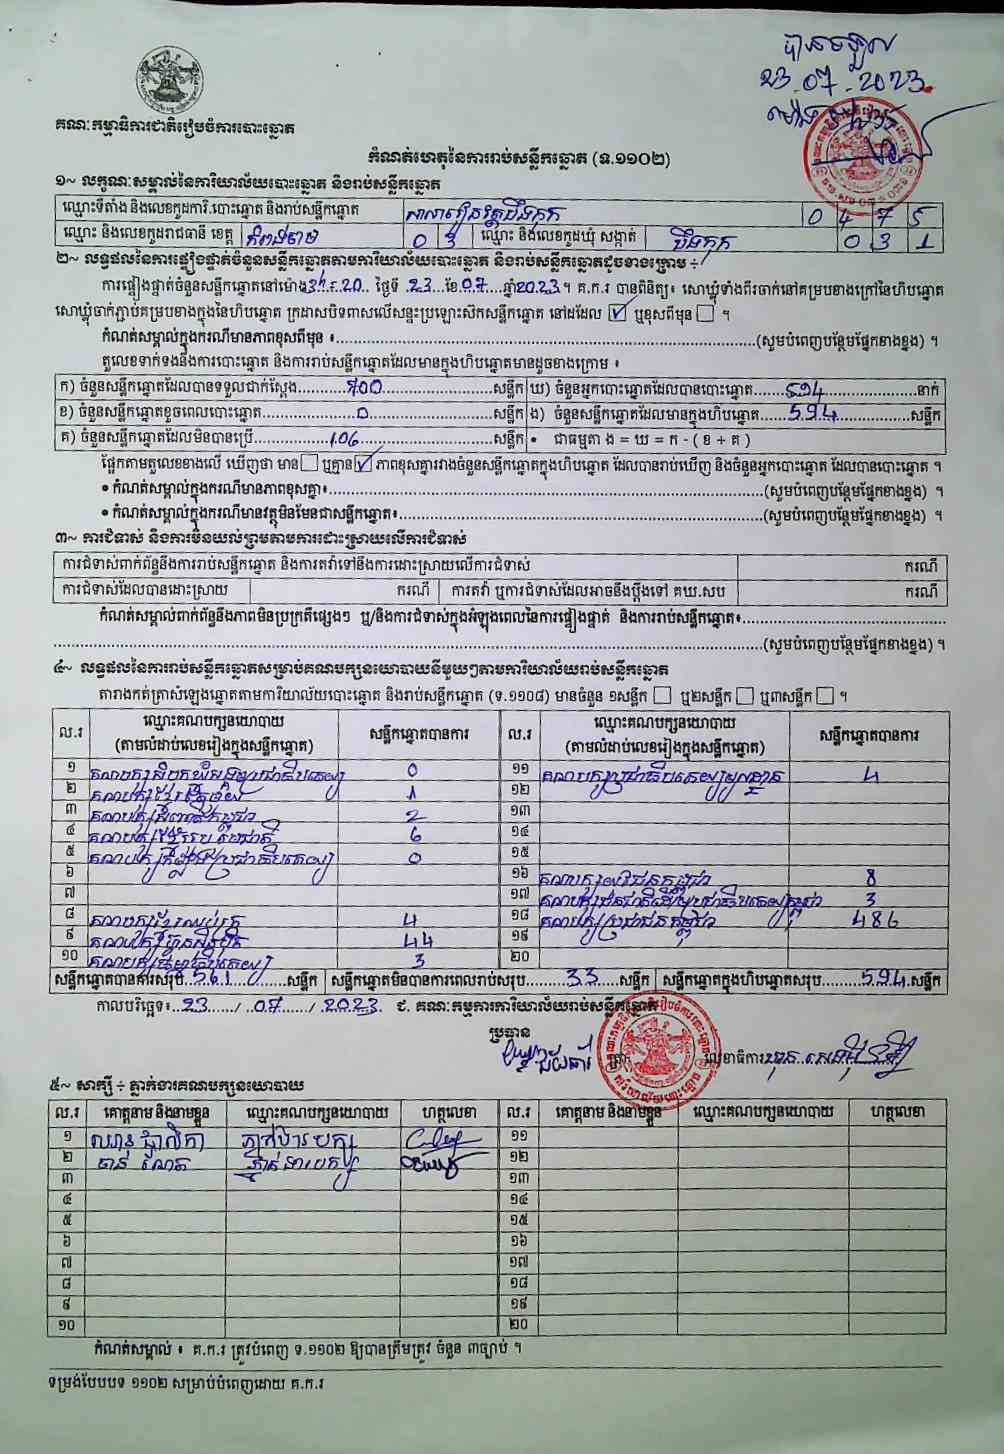 បានចម្លង
23.07.2023
គណៈកម្មាធិការជាតិរៀបចំការបោះឆ្នោត
កំណត់ហេតុនៃការរាប់សន្លឹកឆ្នោត (ទ.១១០២)
១~ លក្ខណៈសម្គាល់នៃការិយាល័យបោះឆ្នោត និងរាប់សន្លឹកឆ្នោត
ឈ្មោះទីតាំង និងលេខកូដការិ.បោះឆ្នោត និងរាប់សន្លឹកឆ្នោត សាលារៀនវត្តបឹងកុក 0 4 7 5
ឈ្មោះ និងលេខកូដរាជធានី ខេត្ត កំពង់ចាម 0 3 ឈ្មោះ និងលេខកូដឃុំ សង្កាត់ បឹងកុក 0 3 1
២~ លទ្ធផលនៃការផ្ទៀងផ្ទាត់ចំនួនសន្លឹកឆ្នោតតាមការិយាល័យបោះឆ្នោត និងរាប់សន្លឹកឆ្នោតដូចខាងក្រោម ÷
ការផ្ទៀងផ្ទាត់ចំនួនសន្លឹកឆ្នោតនៅម៉ោង ថ្ងៃទី 23 ខែ 07 ឆ្នាំ 2023 ។ គ.ក.រ បានពិនិត្យ៖ សោឃ្លុំទាំងពីរចាក់នៅគម្របខាងក្រៅនៃហិបឆ្នោត
សោឃ្លុំចាក់ភ្ជាប់គម្របខាងក្នុងនៃហិបឆ្នោត ក្រដាសបិទពាសលើសន្ទះប្រឡោះស៊កសន្លឹកឆ្នោត នៅដដែល ☑ ឬខុសពីមុន ☐ ។
កំណត់សម្គាល់ក្នុងករណីមានភាពខុសពីមុន ៖ (សូមបំពេញបន្ថែមផ្នែកខាងខ្នង) ។
តួលេខទាក់ទងនឹងការបោះឆ្នោត និងការរាប់សន្លឹកឆ្នោតដែលមានក្នុងហិបឆ្នោតមានដូចខាងក្រោម ៖
ក) ចំនួនសន្លឹកឆ្នោតដែលបានទទួលជាក់ស្តែង 700 សន្លឹក ឃ) ចំនួនអ្នកបោះឆ្នោតដែលបានបោះឆ្នោត 594 នាក់
ខ) ចំនួនសន្លឹកឆ្នោតខូចពេលបោះឆ្នោត 0 សន្លឹក ង) ចំនួនសន្លឹកឆ្នោតដែលមានក្នុងហិបឆ្នោត 594 សន្លឹក
គ) ចំនួនសន្លឹកឆ្នោតដែលមិនបានប្រើ 106 សន្លឹក • ជាធម្មតា ង = ឃ = ក - ( ខ + គ )
ផ្អែកតាមតួលេខខាងលើ ឃើញថា មាន ☐ ឬគ្មាន ☑ ភាពខុសគ្នារវាងចំនួនសន្លឹកឆ្នោតក្នុងហិបឆ្នោត ដែលបានរាប់ឃើញ និងចំនួនអ្នកបោះឆ្នោត ដែលបានបោះឆ្នោត ។
• កំណត់សម្គាល់ក្នុងករណីមានភាពខុសគ្នា៖ (សូមបំពេញបន្ថែមផ្នែកខាងខ្នង) ។
• កំណត់សម្គាល់ក្នុងករណីមានវត្ថុមិនមែនជាសន្លឹកឆ្នោត៖ (សូមបំពេញបន្ថែមផ្នែកខាងខ្នង) ។
៣~ ការជំទាស់ និងការមិនយល់ព្រមតាមការដោះស្រាយលើការជំទាស់
ការជំទាស់ពាក់ព័ន្ធនឹងការរាប់សន្លឹកឆ្នោត និងការតវ៉ាទៅនឹងការដោះស្រាយលើការជំទាស់ ករណី
ការជំទាស់ដែលបានដោះស្រាយ ករណី ការតវ៉ា ឬការជំទាស់ដែលអាចនឹងប្តឹងទៅ គឃ.សប ករណី
កំណត់សម្គាល់ពាក់ព័ន្ធនឹងភាពមិនប្រក្រតីផ្សេងៗ ឬ/និងការជំទាស់ក្នុងអំឡុងពេលនៃការផ្ទៀងផ្ទាត់ និងការរាប់សន្លឹកឆ្នោត៖
(សូមបំពេញបន្ថែមផ្នែកខាងខ្នង) ។
៤~ លទ្ធផលនៃការរាប់សន្លឹកឆ្នោតសម្រាប់គណបក្សនយោបាយនីមួយៗតាមការិយាល័យរាប់សន្លឹកឆ្នោត
តារាងកត់ត្រាសំឡេងឆ្នោតតាមការិយាល័យបោះឆ្នោត និងរាប់សន្លឹកឆ្នោត (ទ.១១០៨) មានចំនួន ១សន្លឹក ☐ ឬ២សន្លឹក ☐ ឬ៣សន្លឹក ☐ ។
ល.រ ឈ្មោះគណបក្សនយោបាយ (តាមលំដាប់លេខរៀងក្នុងសន្លឹកឆ្នោត) សន្លឹកឆ្នោតបានការ ល.រ ឈ្មោះគណបក្សនយោបាយ (តាមលំដាប់លេខរៀងក្នុងសន្លឹកឆ្នោត) សន្លឹកឆ្នោតបានការ
១ គណបក្សសំបុកឃ្មុំសង្គមប្រជាធិបតេយ្យ 0 ១១ គណបក្សប្រជាធិបតេយ្យមូលដ្ឋាន 4
២ 1 ១២
៣ 2 ១៣
៤ គណបក្សខ្មែររួបរួមជាតិ 6 ១៤
៥ 0 ១៥
៦ ១៦ គណបក្សយុវជនកម្ពុជា 8
៧ ១៧ គណបក្សជនជាតិដើមប្រជាធិបតេយ្យកម្ពុជា 3
៨ គណបក្សខ្មែរឈប់ក្រ 4 ១៨ គណបក្សប្រជាជនកម្ពុជា 486
៩ គណបក្សហ៊្វុនស៊ិនប៉ិច 44 ១៩
១០ គណបក្សធម្មាធិបតេយ្យ 3 ២០
សន្លឹកឆ្នោតបានការសរុប 561 សន្លឹក សន្លឹកឆ្នោតមិនបានការពេលរាប់សរុប 33 សន្លឹក សន្លឹកឆ្នោតក្នុងហិបឆ្នោតសរុប 594 សន្លឹក
កាលបរិច្ឆេទ៖ 23 / 07 / 2023 ជ. គណៈកម្មការការិយាល័យរាប់សន្លឹកឆ្នោត
ប្រធាន
លេខាធិការ
៥~ សាក្សី ÷ ភ្នាក់ងារគណបក្សនយោបាយ
ល.រ គោត្តនាម និងនាមខ្លួន ឈ្មោះគណបក្សនយោបាយ ហត្ថលេខា ល.រ គោត្តនាម និងនាមខ្លួន ឈ្មោះគណបក្សនយោបាយ ហត្ថលេខា
១ ភ្នាក់ងារបក្ស ១១
២ ចាន់ ណែត ភ្នាក់ងារបក្ស ១២
៣ ១៣
៤ ១៤
៥ ១៥
៦ ១៦
៧ ១៧
៨ ១៨
៩ ១៩
១០ ២០
កំណត់សម្គាល់ ៖ គ.ក.រ ត្រូវបំពេញ ទ.១១០២ ឱ្យបានត្រឹមត្រូវ ចំនួន ៣ច្បាប់ ។
ទម្រង់បែបបទ ១១០២ សម្រាប់បំពេញដោយ គ.ក.រ